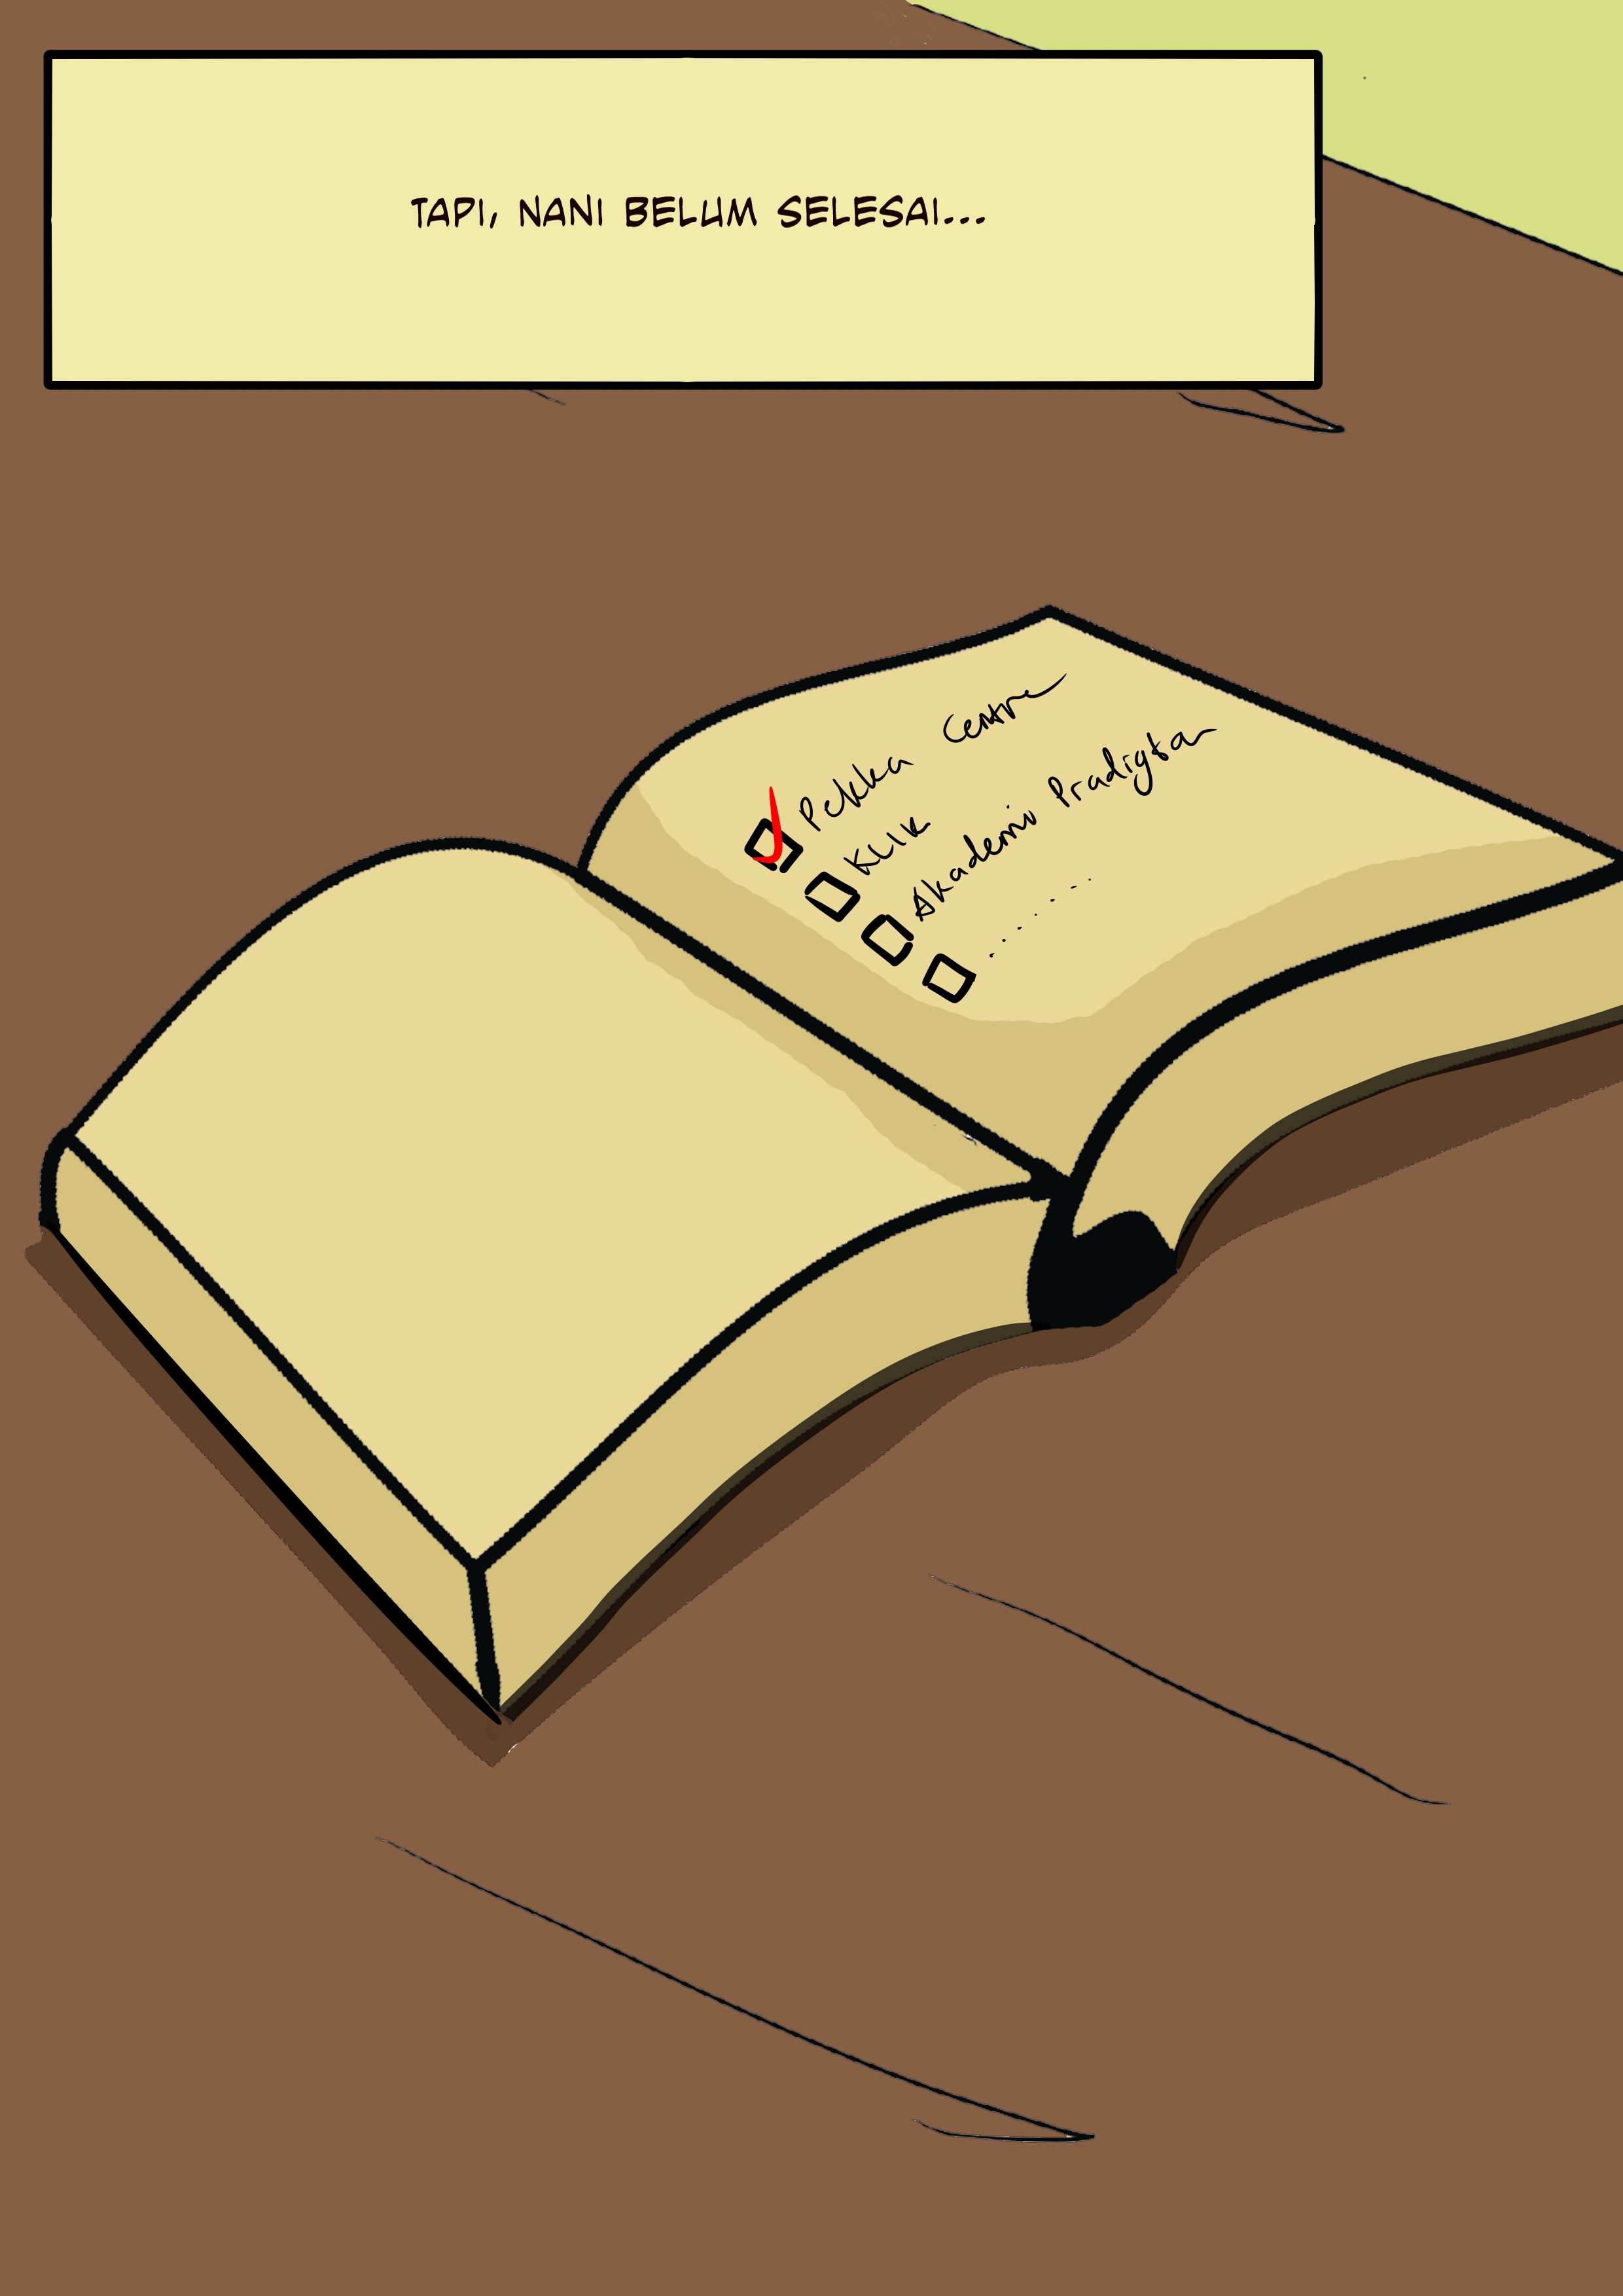 TAPI, NANI BELUM SELESAI...
Pekka Center
Klik
Akademi Pradigta
.......